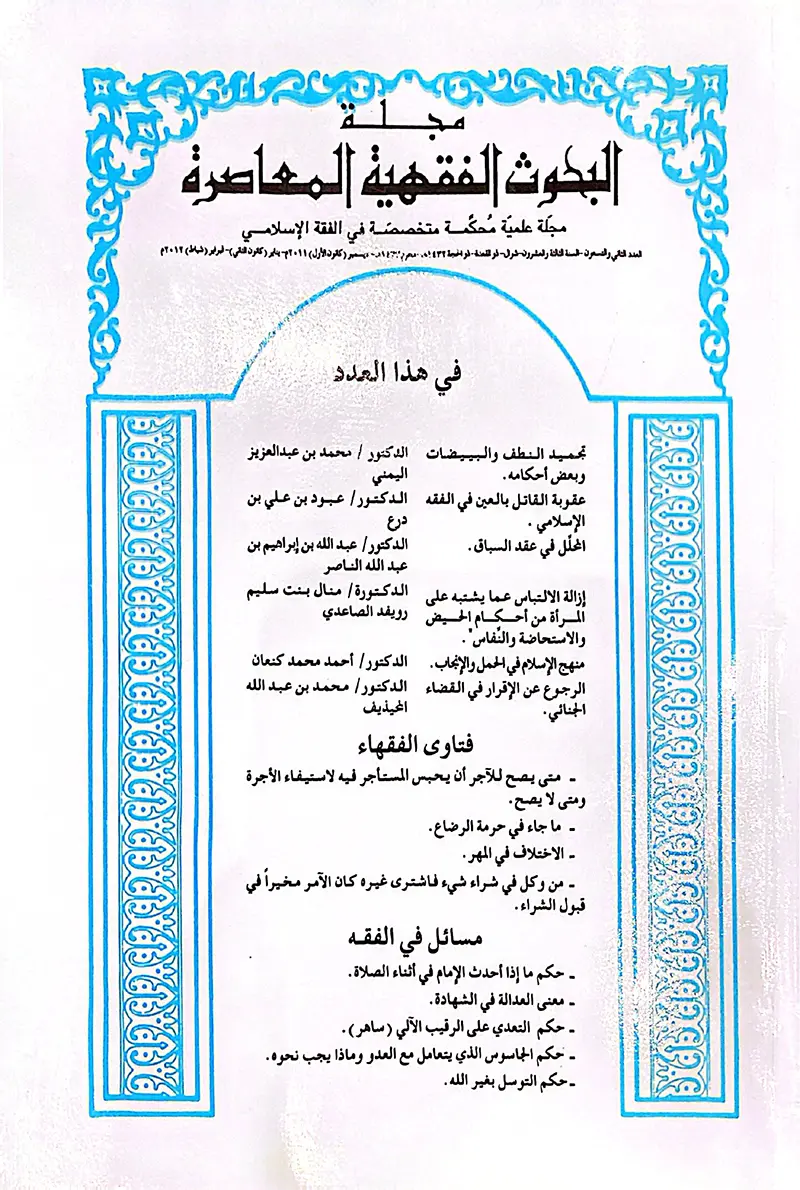 مجلة
البحوث الفقهية المعاصرة
مجلة علمية مُحكَّمة متخصصة في الفقة الإسلامي
العدد الثاني والتسعون - السنة الثالثة والعشرون - شوال - ذو القعدة - ذو الحجة ١٤٣٢هـ - محرم - ديسمبر (كانون الأول) ٢٠١١م - يناير (كانون الثاني) - فبراير (شباط) ٢٠١٢م
في هذا العدد
تجميد النطف والبييضات الدكتور / محمد بن عبدالعزيز
وبعض أحكامه. اليمني
عقوبة القاتل بالعين في الفقه الدكتور/ عبود بن علي بن
الإسلامي. درع
المحلّل في عقد السباق. الدكتور/ عبد الله بن إبراهيم بن
عبد الله الناصر
إزالة الالتباس عما يشتبه على الدكتورة/ منال بنت سليم
المرأة من أحكام الحيض رويفد الصاعدي
والاستحاضة والنِّفاس".
منهج الإسلام في الحمل والإنجاب. الدكتور/ أحمد محمد كنعان
الرجوع عن الإقرار في القضاء الدكتور/ محمد بن عبد الله
الجنائي. المحيذيف
فتاوى الفقهاء
- متى يصح للآجر أن يحبس المستأجر فيه لاستيفاء الأجرة
ومتى لا يصح.
- ما جاء في حرمة الرضاع.
- الاختلاف في المهر.
- من وكل في شراء شيء فاشترى غيره كان الآمر مخيراً في
قبول الشراء.
مسائل في الفقه
- حكم ما إذا أحدث الإمام في أثناء الصلاة.
- معنى العدالة في الشهادة.
- حكم التعدي على الرقيب الآلي (ساهر).
- حكم الجاسوس الذي يتعامل مع العدو وماذا يجب نحوه.
- حكم التوسل بغير الله.